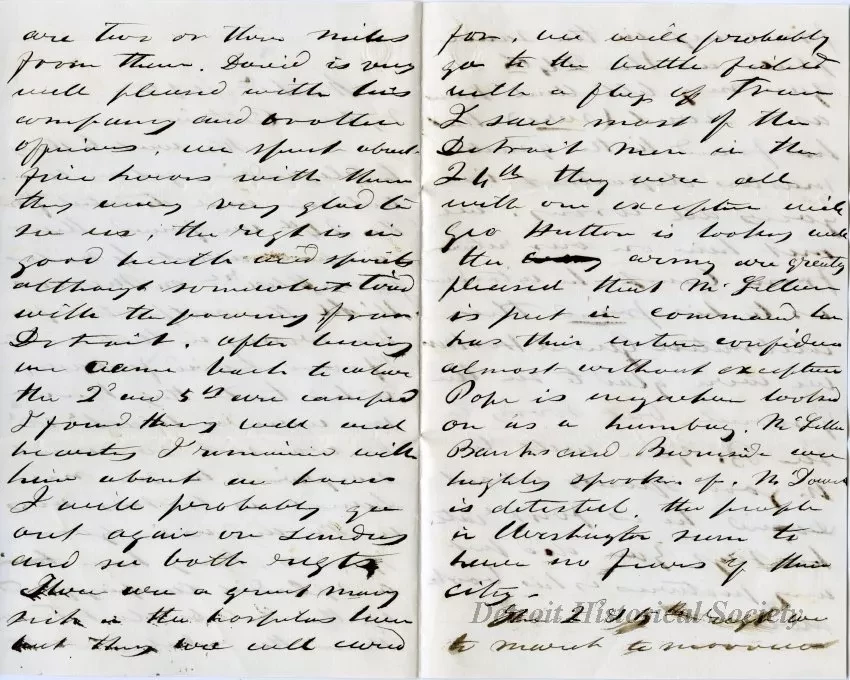 are two or three miles
from them. David is very
well pleased with his
company and brother
officers, we spent about
five hours with them
they were very glad to
see us, the regt is in
good health and spirits
although somewhat tired
with the journey from
Detroit. after leaving
we came back to where
the 2d and 5th are camped
I found Harry well and
hearty I remained with
him about an hour
I will probably go
out again on Sunday
and see both regts
There are a great many
sick in the hospitals here
but they are well cared
for, we will probably
go to the battle field
with a flag of Truce
I saw most of the
Detroit men in the
24th they were all
with one exception well
Geo Hutton is looking well
the army are greatly
pleased that McLellan
is put in command he
has their entire confidence
almost without exception
Pope is looked
on as a humbug. McLellan
Banks and Burnside are
highly spooken of. McDowell
is detested. the people
in Washington seem to
have no fears of their
city.
2 & 5th regt are
to march tomorrow
Detroit Historical Society